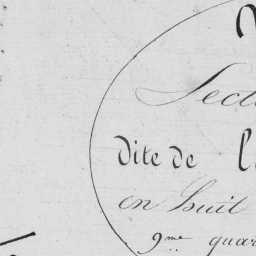 Sect
dite de l
en huit
9me quar